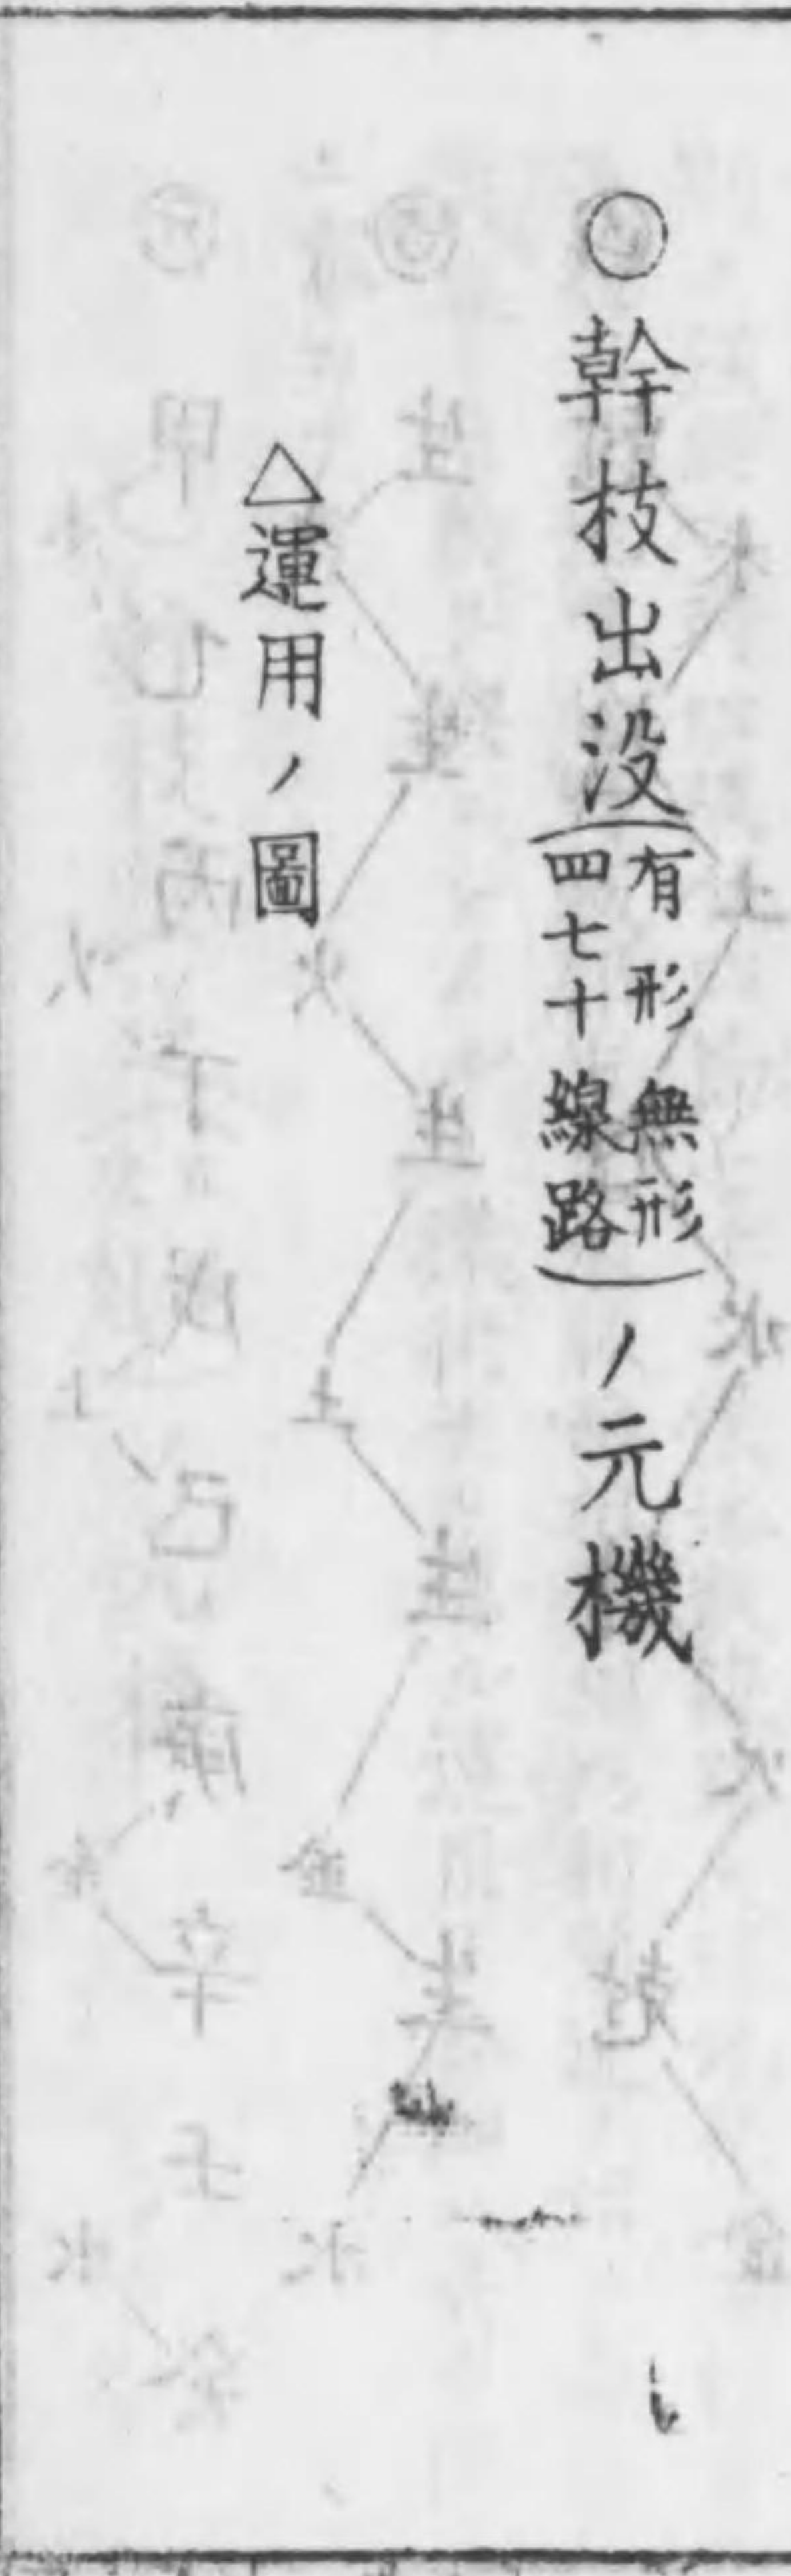 ○幹枝出没(有形無形四七十線路)ノ元機
△運用ノ圖